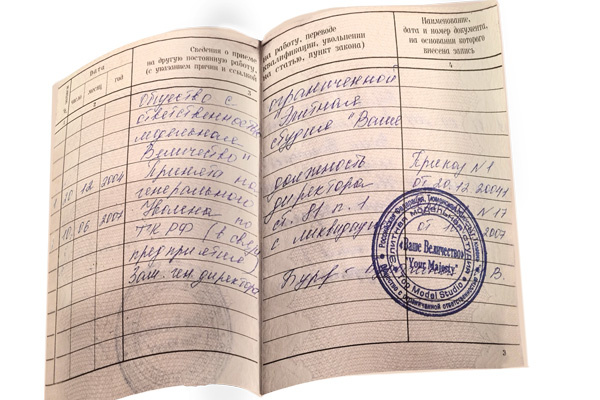 Дата
Сведения о приеме на работу, переводе
на другую постоянную работу, квалификации, увольнении
(с указанием причин и ссылкой на статью, пункт закона)
Наименование,
дата и номер документа,
на основании которого
внесена запись
число месяц год
3 4
Общество с ограниченной
ответственностью "Элитная
модельная студия "Ваше
Величество"
1 20 12 2004 Принята на должность Приказ N 1
генерального директора от 20.12 2004
10 06 2007 Уволена по ст. 81 п. 1 N 17
ТК РФ с ликвидацией от 2007
предприятия)
Зам. ген директора В.
Российская Федерация,
Элитная модельная студия
«Ваше Величество»
"Your Majesty"
Top Model Studio
с ограниченной ответственностью
3